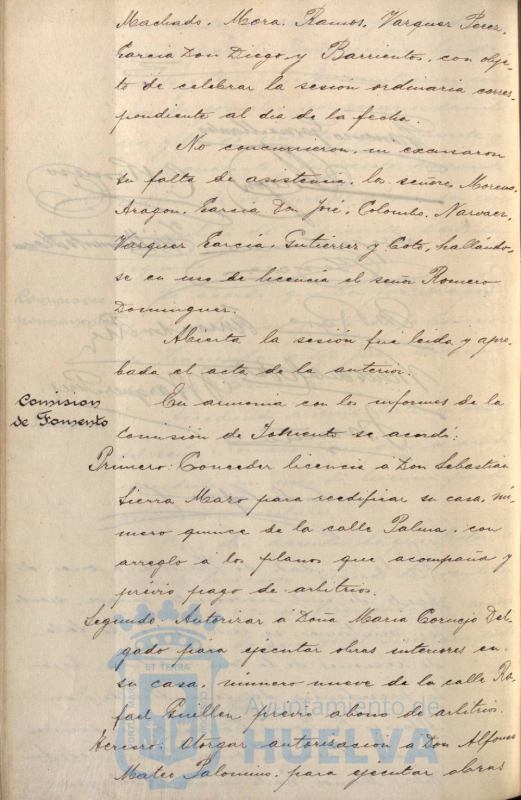 Machado, Mora, Ramos, Vazquez Perez,
Garcia Don Diego y Barrientos, con obje-
to de celebrar la sesion ordinaria corres-
pondiente al dia de la fecha.
No concurrieron, ni excusaron
su falta de asistencia, los señores Moreno,
Aragon, Garcia Don José, Colombo, Narvaez,
Vazquez Garcia, Gutierrez y Coto, hallándo-
se en uso de licencia el señor Romero
Dominguez.
Abierta la sesión fué leida y apro-
bada el acta de la anterior.
Comision
de Fomento
En armonia con los informes de la
Comisión de Fomento se acordó:
Primero: Conceder licencia a Don Sebastian
Sierra Mazo para reedificar su casa, nú-
mero quince de la calle Palma, con
arreglo á los planos que acompaña y
prévio pago de arbitrios.
Segundo: Autorizar á Doña Maria Cornejo Del-
gado para ejecutar obras interiores en
su casa, número nueve de la calle Ra-
fael Guillen prévio abono de arbitrios.
Tercero: Otorgar autorización a Don Alfonso
Mateo Palomino, para ejecutar obras
Ayuntamiento de
HUELVA